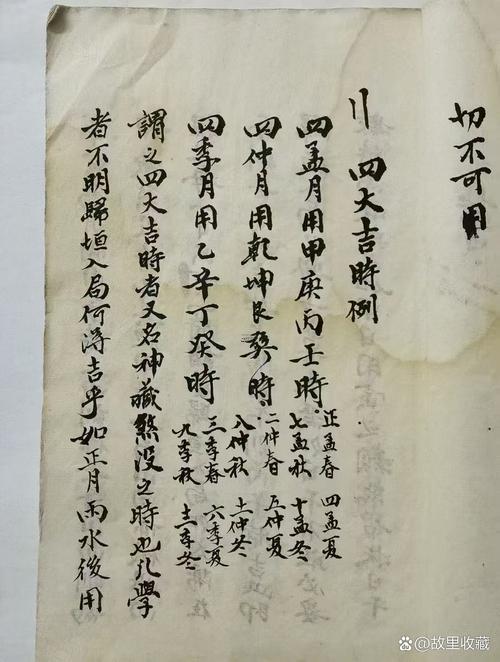 切不可用
四大吉時例
四孟月用甲庚丙壬時
正孟春 四孟夏
七孟秋 十孟冬
四仲月用乾坤艮巽時
二仲春 五仲夏
八仲秋 十一仲冬
四季月用乙辛丁癸時
三季春 六季夏
九季秋 十二季冬
謂之四大吉時者又名神藏煞没之時也凡學
者不明歸垣入局何淂吉乎如正月雨水後用
@故里收藏